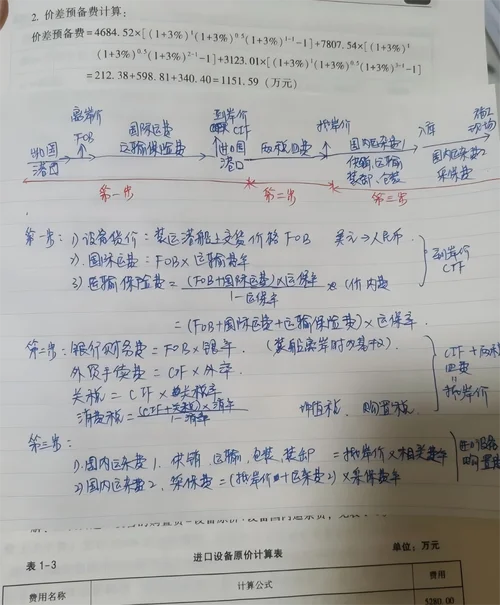 2. 价差预备费计算：
价差预备费=4684.52×[(1+3%)¹(1+3%)⁰·⁵(1+3%)¹⁻¹-1]+7807.54×[(1+3%)¹
(1+3%)⁰·⁵(1+3%)²⁻¹-1]+3123.01×[(1+3%)¹(1+3%)⁰·⁵(1+3%)³⁻¹-1]
=212.38+598.81+340.40=1151.59（万元）
离岸价 到岸价 抵岸价 入库 施工现场
FOB 国际运费 CIF 国内运杂费1 国内运杂费2
出口国港口 运输保险费 进口国港口 供销、运输 采保费
装卸、仓装
第一步 第二步 第三步
第一步：1)设备货价=装运港船上交货价格FOB 美元→人民币
2)国际运费=FOB×运输费率 到岸价
3)运输保险费=(FOB+国际运费)×运保率/1-运保率 CIF
=(FOB+国际运费+运输保险费)×运保率.
第二步：银行财务费=FOB×银率.
外贸手续费=CIF×外率. CIF+
关税=CIF×关税率 =
消费税=(CIF+关税)×消率/1-消率 增值税、购置税. 抵岸价
第三步：
1)国内运杂费1.供销,运输,包装,装卸=抵岸价×相关费率
2)国内运杂费2,采保费=(抵岸价+运杂费2)×采保费率
表1-3 进口设备原价计算表 单位：万元
费用名称 计算公式 费用
5280.00